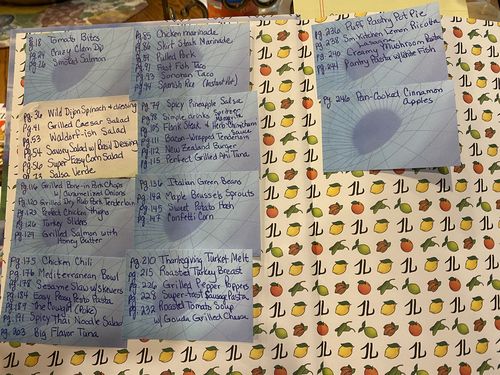 Pg. 18 Tomato Bites
Pg. 24 Crazy Clam Dip
Pg. 26 Smoked Salmon
Pg. 36 Wild Dijon Spinach & dressing
Pg. 41 Grilled Caesar Salad
Waldorf-ish Salad
Pg. 54 Savory Salad w/ Basil Dressing
Pg. 56 Super Easy Corn Salad
Salsa Verde
Pg. 116 Grilled Bone-in Pork Chops
w/ Caramelized Onions
Pg. 120 Grilled Dry Rub Pork Tenderloin
Pg. 123 Perfect Chicken thighs
Pg. 126 Turkey Sliders
Pg. 129 Grilled Salmon with
Honey Butter
Pg. 175 Chicken Chili
Pg. 176 Mediterranean Bowl
Pg. 178 Sesame Slaw w/ Skewers
Pg. 184 Easy Peasy Pesto Pasta
Pg. 187 The Cowgirl (Poke)
Pg. 191 Spicy Thai Noodle Salad
Pg. 203 Big Flavor Tuna
Pg. 85 Chicken marinade
Pg. 86 Skirt Steak Marinade
Pg. 89 Pulled Pork
Fast Fish Taco
Pg. 93 Sonoran Taco
Pg. 94 Spanish Rice
Pg. 74 Spicy Pineapple Salsa
Pg. 78 Simple drinks
Pg. 105 Flank Steak & Herb
Sauce
Pg. 111 Bacon-Wrapped Tenderloin
Pg. 112 New Zealand Burger
Pg. 115 Perfect Grilled Ahi Tuna
Pg. 136 Italian Green Beans
Pg. 142 Maple Brussels Sprouts
Pg. 145 Sweet Potato Hash
Pg. 147 Confetti Corn
Pg. 210 Thanksgiving Turket Melt
Pg. 215 Roasted Turkey Breast
Pg. 226 Grilled Pepper Poppers
Pg. 228 Super-fast Sausage Pasta
Pg. 232 Roasted Tomato Soup
w/ Gouda Grilled Cheese
Pg. 236 Puff Pastry Pot Pie
Pg. 238 Sm Kitchen Lemon Ricotta
Lasagna
Pg. 240 Creamy Mushroom Pasta
Pg. 241 Pantry Pasta w/ White Fish
Pg. 246 Pan-Cooked Cinnamon
Apples